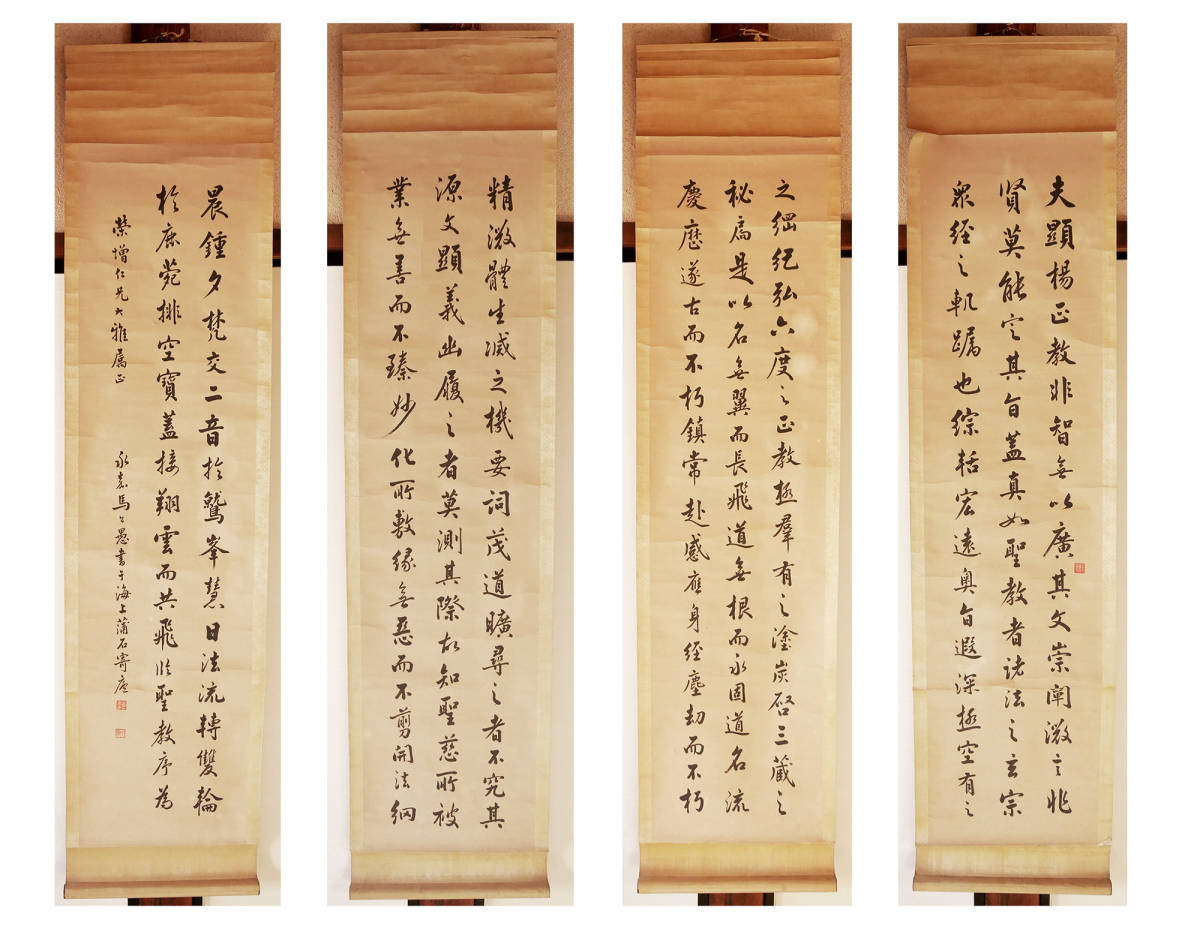 夫顯楊正教非智無以廣其文崇闡微言非
賢莫能定其旨蓋真如聖教者諸法之玄宗
眾經之軌躅也綜括宏遠奧旨遐深極空有之
精微體生滅之機要詞茂道曠尋之者不究其
源文顯義幽履之者莫測其際故知聖慈所被
業無善而不臻妙化所敷緣無惡而不剪開法網
之綱紀弘六度之正教拯羣有之塗炭啓三藏之
秘扃是以名無翼而長飛道無根而永固道名流
慶歷遂古而不朽鎮常赴感應身經塵劫而不朽
晨鍾夕梵交二音於鷲峯慧日法流轉雙輪
於鹿菀排空寶蓋接翔雲而共飛臨聖教序為
榮增仁兄大雅屬正
永嘉馬公愚書于海上蒲石寄廬